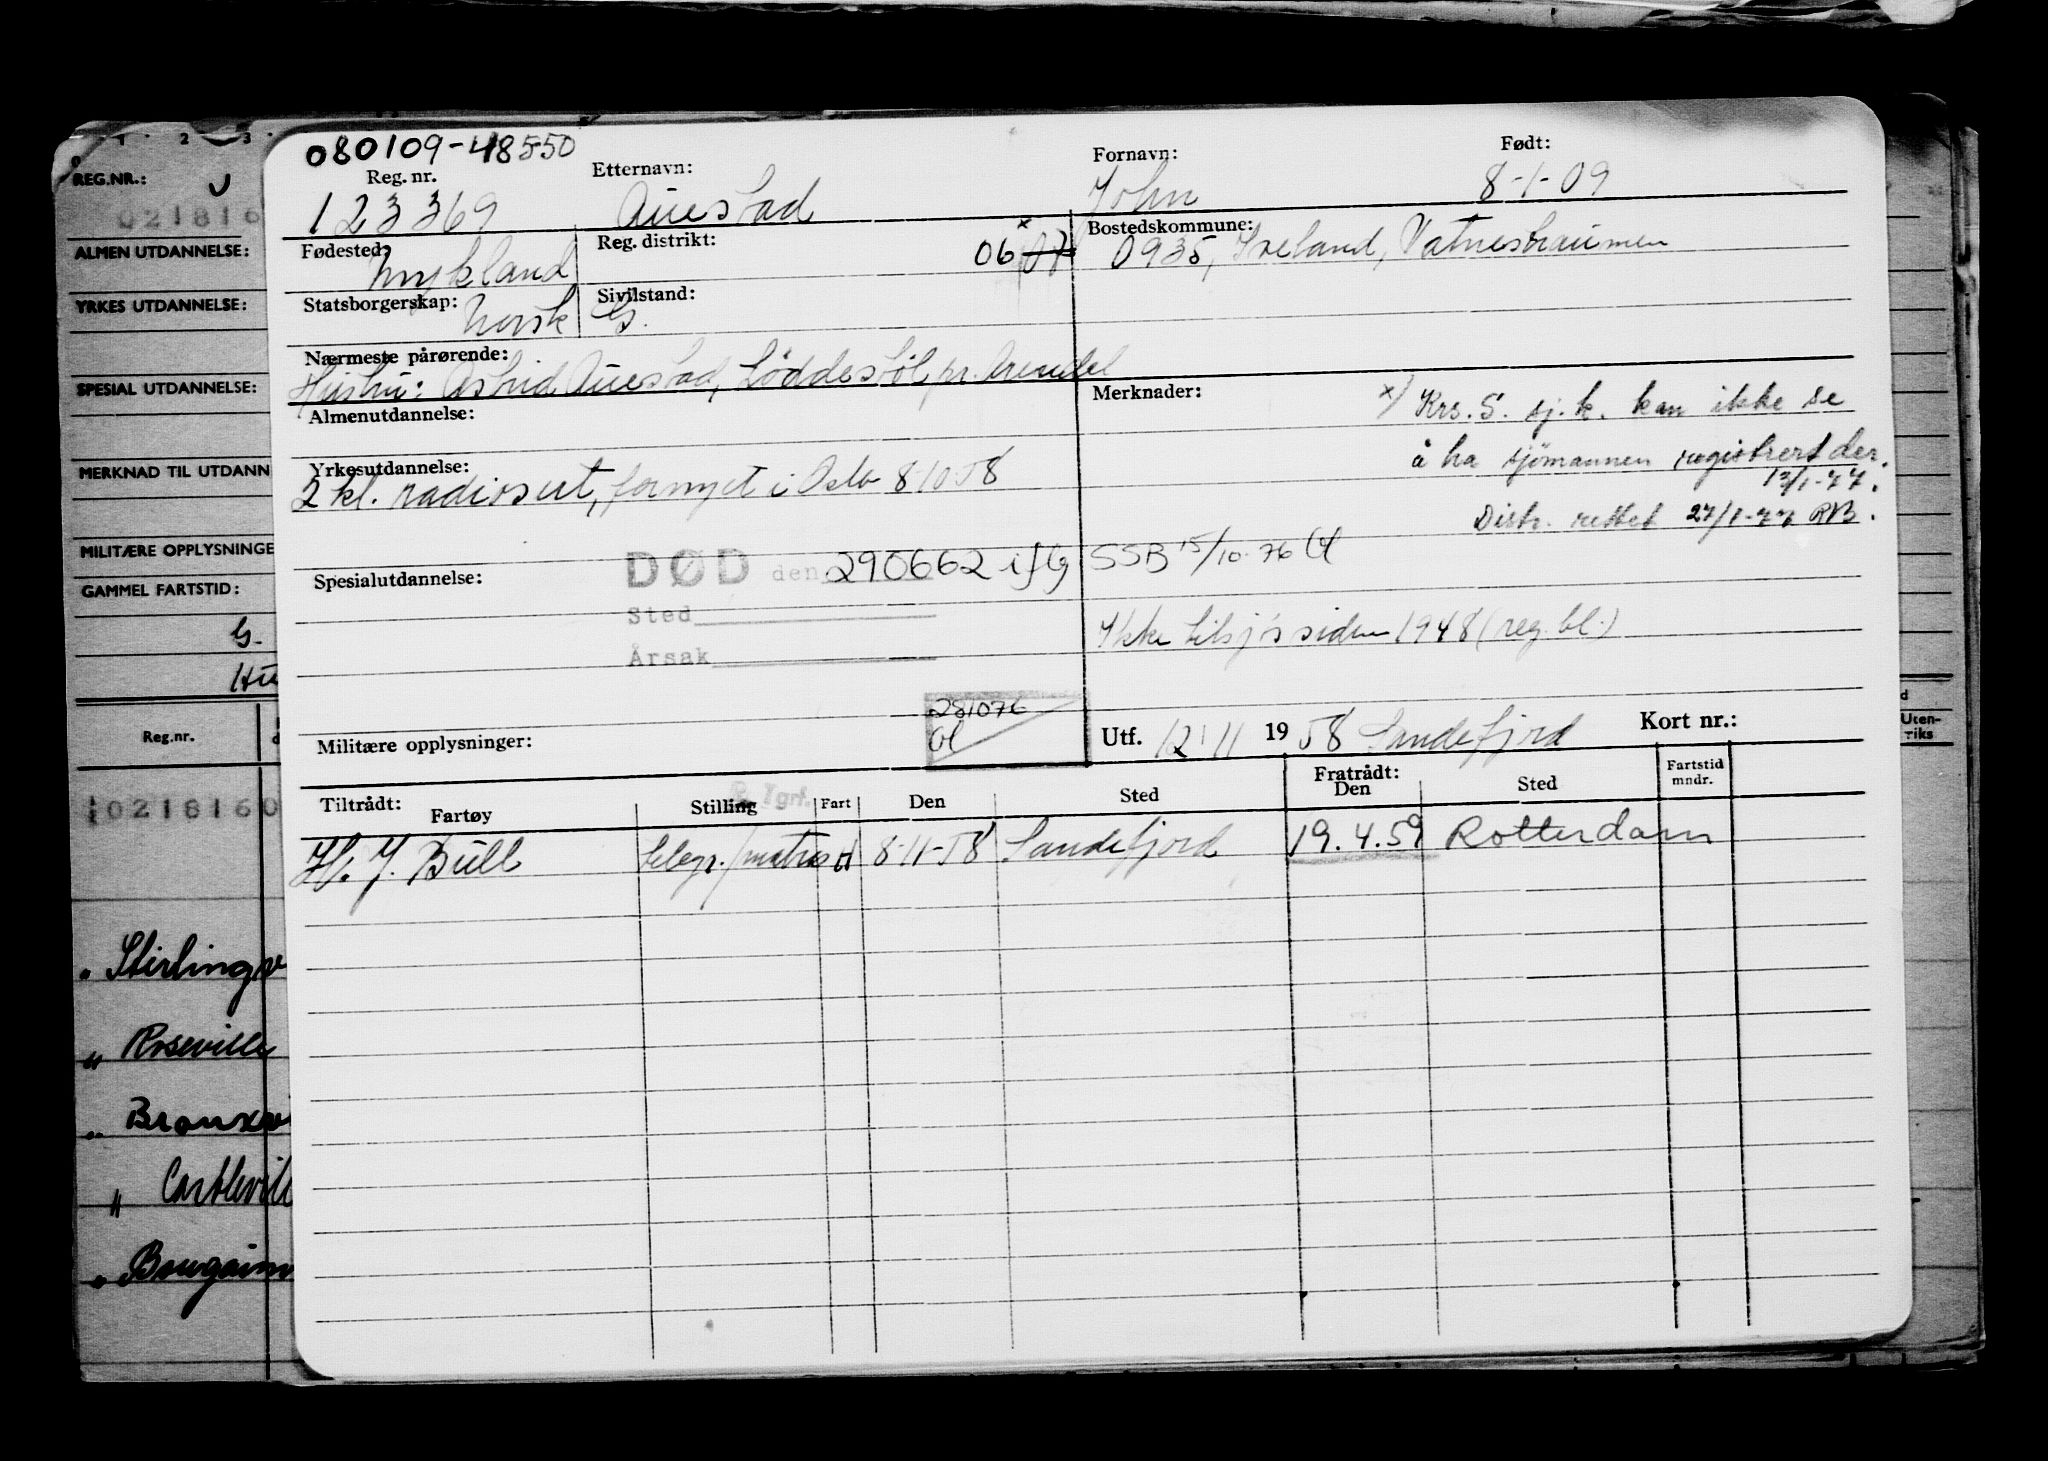 1 2 3
REG.NR.:
021816
ALMEN UTDANNELSE:
YRKES UTDANNELSE:
SPESIAL UTDANNELSE:
MERKNAD TIL UTDANN
MILITÆRE OPPLYSNINGE
GAMMEL FARTSTID:
G.
Hu
Reg.nr.
0218160
" Stirlingv
" Roseville
" Bronxvi
" Castlevill
" Bougainv
Uten-
riks
080109-48550
Reg. nr. Etternavn: Fornavn: Født:
123369 Auestad John 8-1-09
Fødested: Mykland Reg. distrikt: 06 x 07 Bostedskommune: 0935, Iveland, Vatnestraumen
Statsborgerskap: Norsk Sivilstand: G.
Nærmeste pårørende:
Hustru: Astrid Auestad, Løddesøl pr. Arendal
Almenutdannelse: Merknader: x) Krs. S. sj.k. kan ikke se
å ha sjømannen registrert der.
13/1-77.
Yrkesutdannelse:
2 kl. radiosert, fornyet i Oslo 8/10 58
Distr. rettet 27/1-77 RB.
Spesialutdannelse: DØD den 290662 iflg SSB 15/10-76
Sted
Årsak
Ikke tilsjøs siden 1948 (reg.bl.)
281076
Militære opplysninger: Utf. 12/11 1958 Sandefjord Kort nr.:
Tiltrådt: Fratrådt:
Fartøy Stilling Fart Den Sted Den Sted Fartstid mndr.
H. J. Bull telegr./matros H 8-11-58 Sandefjord 19.4.59 Rotterdam